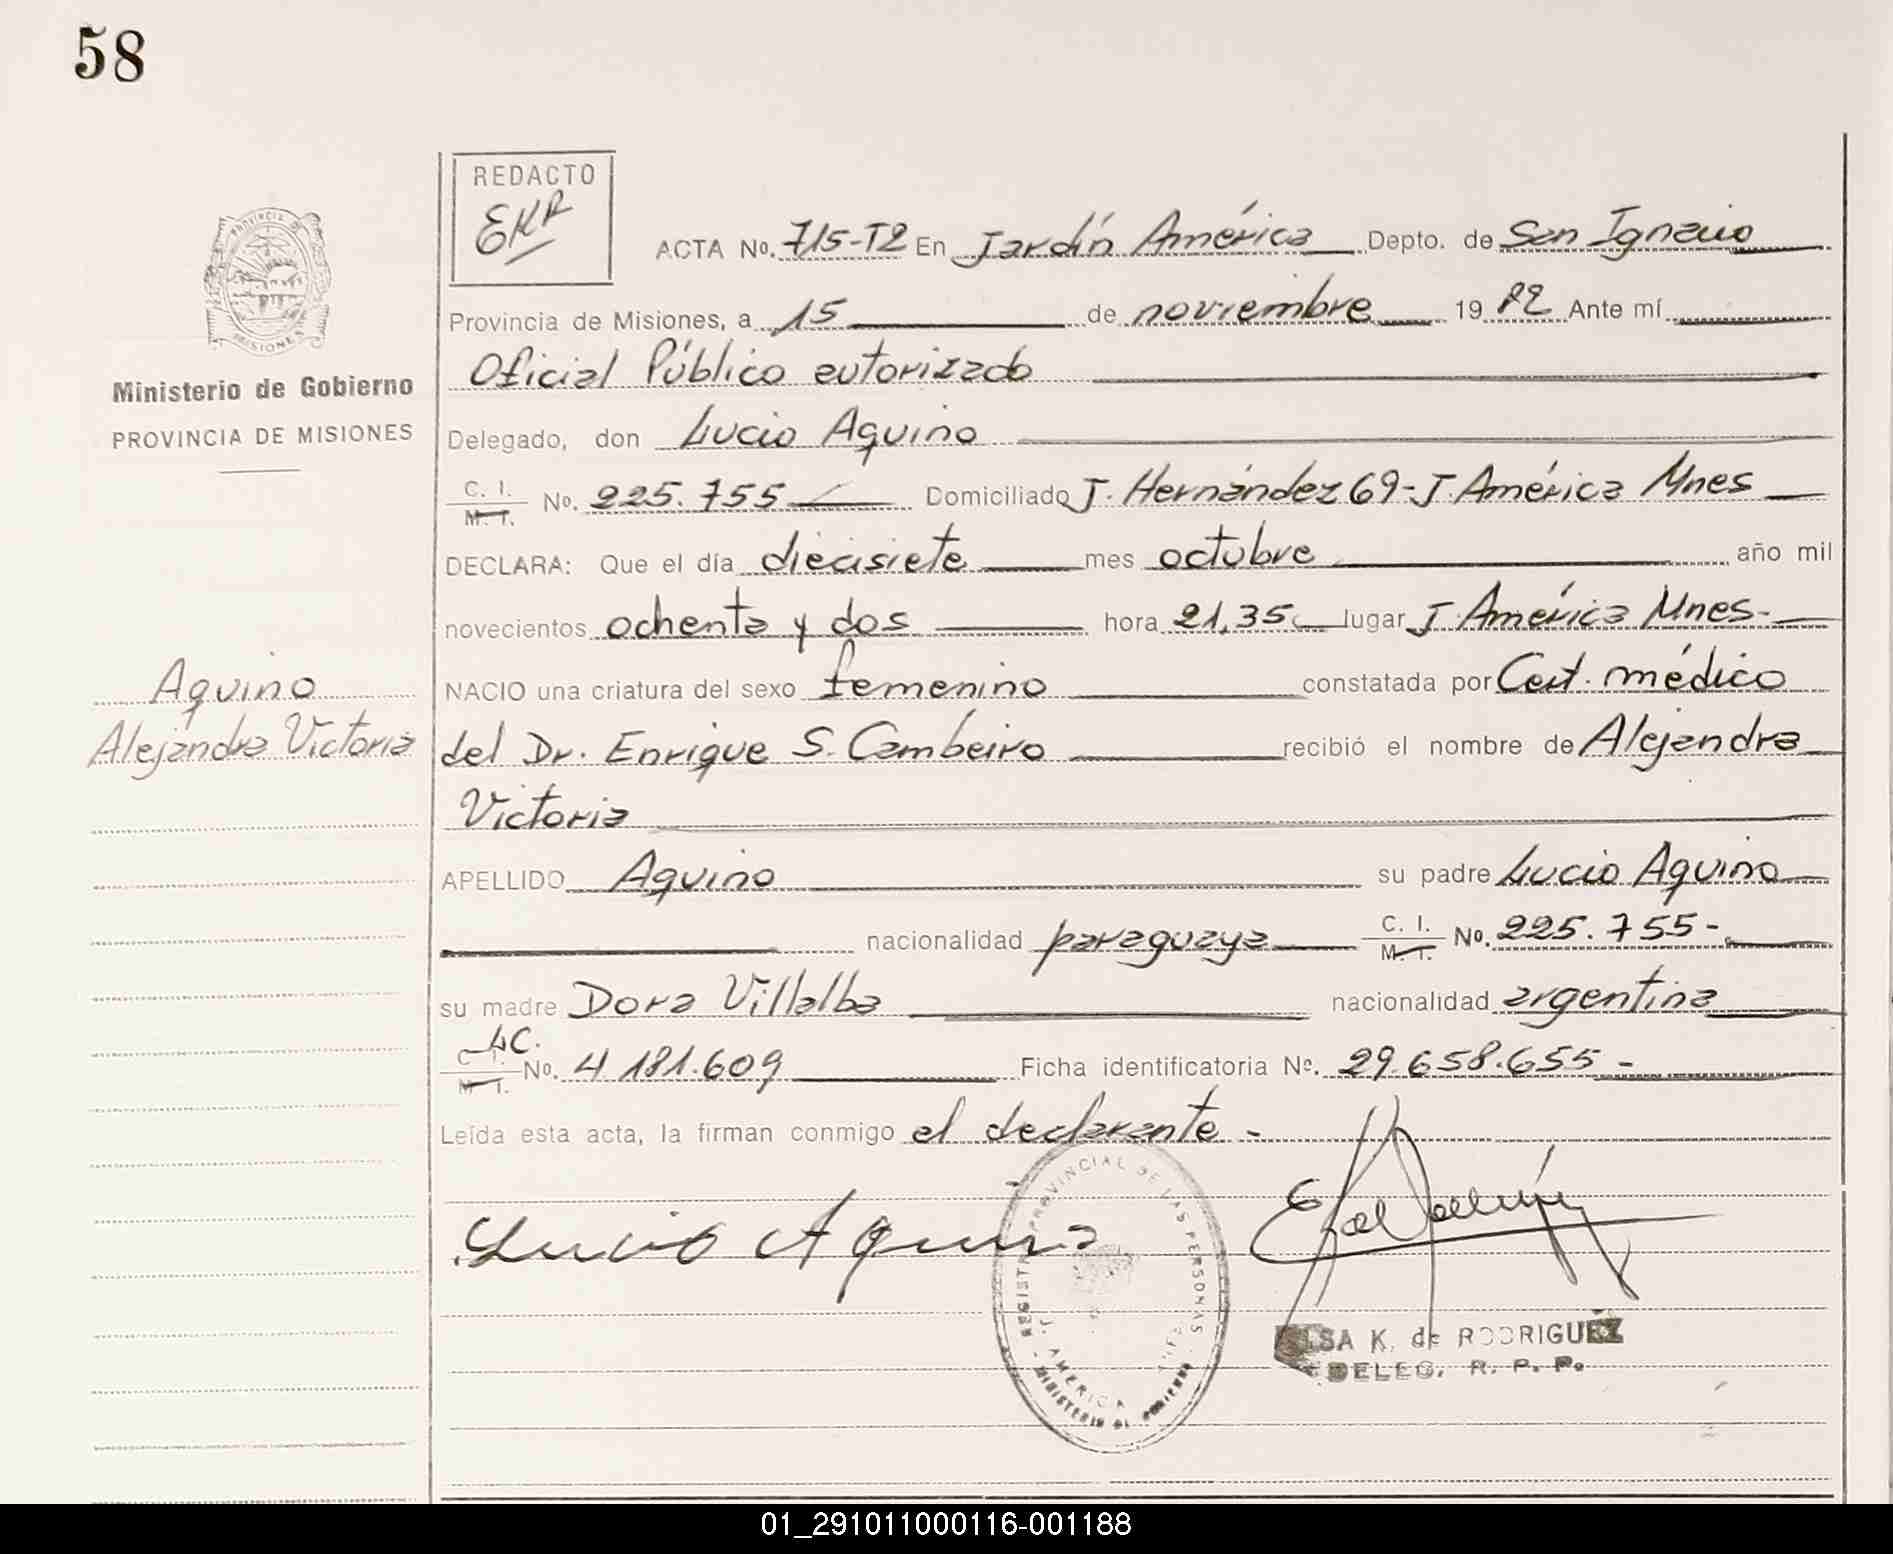 58
REDACTO
EKR
PROVINCIA DE
MISIONES
Ministerio de Gobierno
PROVINCIA DE MISIONES
ACTA No. 715-T2 En Jardín América Depto. de San Ignacio
Provincia de Misiones, a 15 de noviembre 19 82 Ante mí
Oficial Público autorizado
Delegado, don Lucio Aquino
C. I.
M. I. No. 225.755 Domiciliado J. Hernández 69-J. América Mnes
DECLARA: Que el día diecisiete mes octubre año mil
novecientos ochenta y dos hora 21,35 lugar J. América Mnes-
Aquino
Alejandra Victoria
NACIO una criatura del sexo femenino constatada por Cert. médico
del Dr. Enrique S. Cambeiro recibió el nombre de Alejandra
Victoria
APELLIDO Aquino su padre Lucio Aquino
nacionalidad paraguaya C. I.
M. I. No. 225.755-
su madre Dora Villalba nacionalidad argentina
LC.
C. I.
M. I. No. 4 181.609 Ficha identificatoria No. 29.658.655-
Leída esta acta, la firman conmigo el declarante-
Lucio Aquino
REGISTRO PROVINCIAL DE LAS PERSONAS
J. AMERICA
MINISTERIO DE GOBIERNO
ELSA K. de RODRIGUEZ
DELEG. R. P. P.
01_291011000116-001188